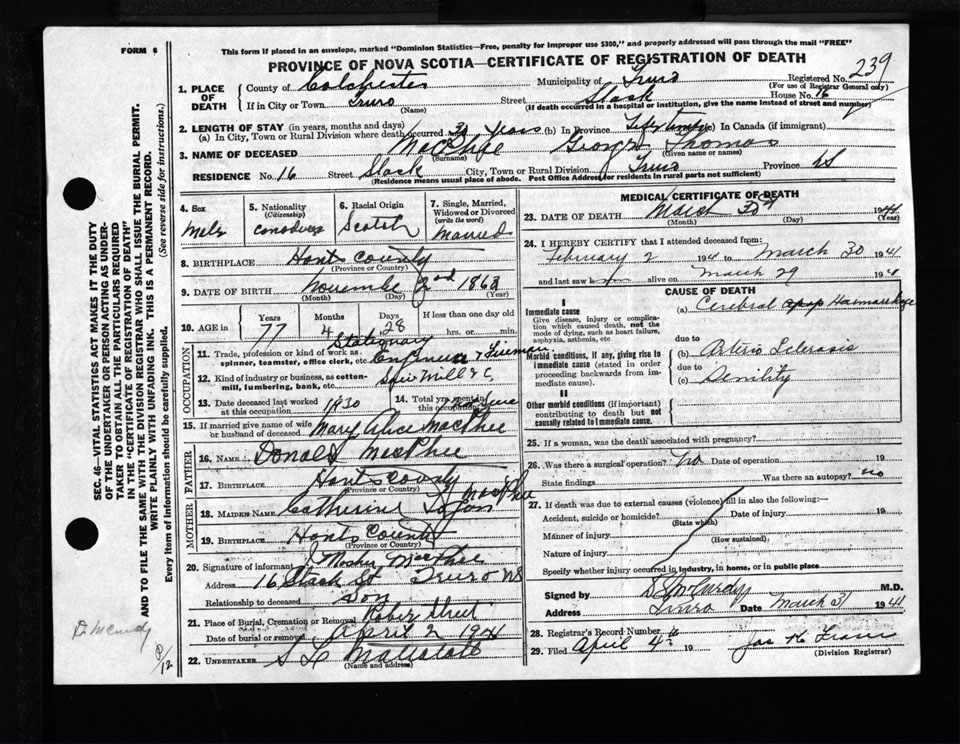 FORM 6
This form if placed in an envelope, marked "Dominion Statistics—Free, penalty for improper use $300," and properly addressed will pass through the mail "FREE"
PROVINCE OF NOVA SCOTIA—CERTIFICATE OF REGISTRATION OF DEATH
Registered No. 239
(For use of Registrar General only)
1. PLACE OF DEATH
County of Colchester Municipality of Truro
If in City or Town Truro Street Slack House No. 16
(Name) (If death occurred in a hospital or institution, give the name instead of street and number)
2. LENGTH OF STAY (in years, months and days)
(a) In City, Town or Rural Division where death occurred 30 years (b) In Province Life time (c) In Canada (if immigrant)
3. NAME OF DECEASED MacPhee George Thomas
(Surname) (Given name or names)
RESIDENCE No. 16 Street Slack City, Town or Rural Division Truro Province NS
(Residence means usual place of abode. Post Office Address for residents in rural parts not sufficient)
4. Sex
Male
5. Nationality
(Citizenship)
Canadian
6. Racial Origin
Scotch
7. Single, Married, Widowed or Divorced
(write the word)
Married
8. BIRTHPLACE Hants County
(Province or Country)
9. DATE OF BIRTH November 2nd 1863
(Month) (Day) (Year)
10. AGE in
Years Months Days If less than one day old
77 4 28 hrs. or min.
OCCUPATION
11. Trade, profession or kind of work as spinner, teamster, office clerk, etc. Stationary Engineer & Fireman
12. Kind of industry or business, as cotton-mill, lumbering, bank, etc.
13. Date deceased last worked at this occupation 1930
14. Total yrs. spent in this occupation
15. If married give name of wife or husband of deceased Mary Alice MacPhee
FATHER
16. Name Donald MacPhee
17. Birthplace Hants County
(Province or Country)
MOTHER
18. Maiden Name Catherine Logan MacPhee
19. Birthplace Hants County
(Province or Country)
20. Signature of informant Mosher MacPhee
Address 16 Slack St Truro NS
Relationship to deceased Son
21. Place of Burial, Cremation or Removal
Date of burial or removal April 2 1941
22. UNDERTAKER
(Name and address)
MEDICAL CERTIFICATE OF DEATH
23. DATE OF DEATH March 30th 1941
(Month) (Day) (Year)
24. I HEREBY CERTIFY that I attended deceased from:
February 2 1941 to March 30 1941
and last saw h alive on March 29 1941
CAUSE OF DEATH
I
Immediate cause
Give disease, injury or complication which caused death, not the mode of dying, such as heart failure, asphyxia, asthenia, etc.
(a) Cerebral Haemorrhage
due to
Morbid conditions, if any, giving rise to immediate cause (stated in order proceeding backwards from immediate cause).
(b) Arterio Sclerosis
due to
(c) Senility
II
Other morbid conditions (if important) contributing to death but not causally related to immediate cause.
25. If a woman, was the death associated with pregnancy?
26. Was there a surgical operation? no Date of operation 19
State findings Was there an autopsy? no
27. If death was due to external causes (violence) fill in also the following:—
Accident, suicide or homicide? Date of injury 19
(State which)
Manner of injury
(How sustained)
Nature of injury
Specify whether injury occurred in industry, in home, or in public place
Signed by McCurdy M.D.
Address Truro Date March 31 1941
28. Registrar's Record Number
29. Filed April 4 19
(Division Registrar)
SEC. 46—VITAL STATISTICS ACT MAKES IT THE DUTY OF THE UNDERTAKER OR PERSON ACTING AS UNDERTAKER TO OBTAIN ALL THE PARTICULARS REQUIRED IN THE "CERTIFICATE OF REGISTRATION OF DEATH"
AND TO FILE THE SAME WITH THE DIVISION REGISTRAR WHO SHALL ISSUE THE BURIAL PERMIT.
WRITE PLAINLY WITH UNFADING INK. THIS IS A PERMANENT RECORD.
Every item of information should be carefully supplied. (See reverse side for instructions.)